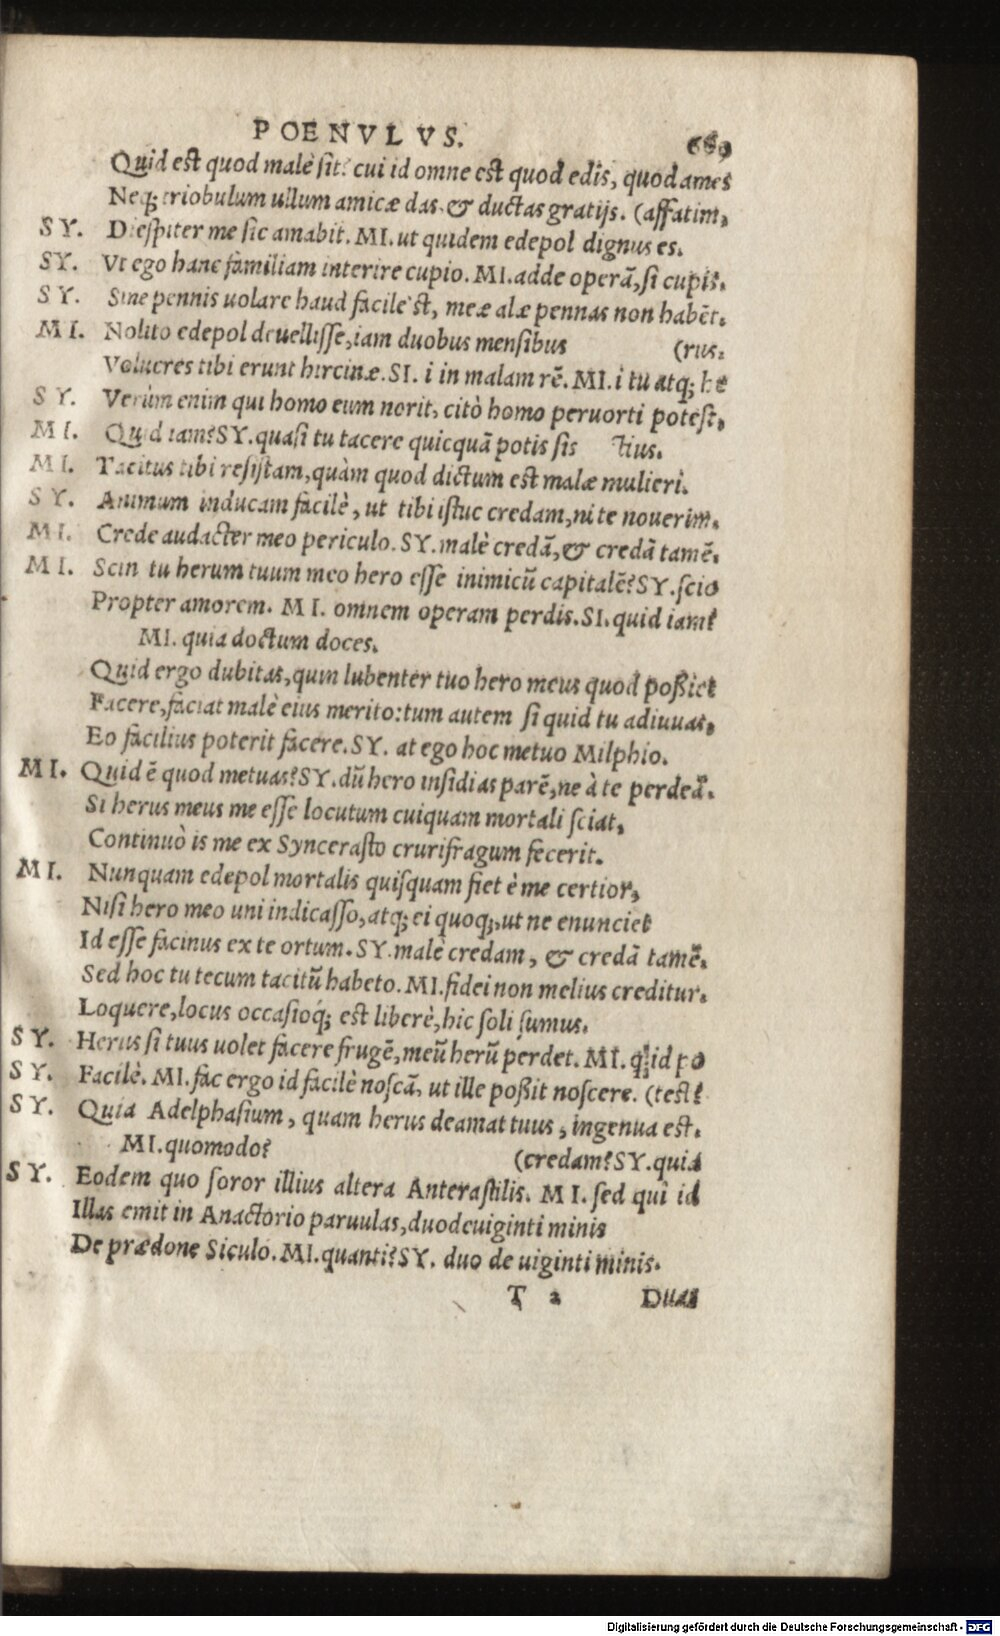 POENVLVS. 689
Quid est quod malè sit? cui id omne est quod edis, quod ames
Neq; triobulum ullum amicæ das & ductas gratijs. (affatim,
SY. Diespiter me sic amabit. MI. ut quidem edepol dignus es.
SY. Vt ego hanc familiam interire cupio. MI. adde operã, si cupis.
SY. Sine pennis uolare haud facile'st, meæ alæ pennas non habẽt.
MI. Nolito edepol deuellisse, iam duobus mensibus (rus.
Volucres tibi erunt hircinæ. SI. i in malam rẽ. MI. i tu atq; he
SY. Verùm enim qui homo eum norit, citò homo peruorti potest,
MI. Quid iam? SY. quasi tu tacere quicquã potis sis
MI. Tacitus tibi resistam, quàm quod dictum est malæ mulieri.
SY. Animum inducam facilè, ut tibi istuc credam, ni te nouerim.
MI. Crede audacter meo periculo. SY. malè credã, & credã tamẽ.
MI. Scin tu herum tuum meo hero esse inimicũ capitalẽ? SY. scio
Propter amorem. MI. omnem operam perdis. SI. quid iam?
MI. quia doctum doces.
Quid ergo dubitas, qum lubenter tuo hero meus quod poßiet
Facere, faciat malè eius merito: tum autem si quid tu adiuuas,
Eo facilius poterit facere. SY. at ego hoc metuo Milphio.
MI. Quid ẽ quod metuas? SY. dũ hero insidias parẽ, ne à te perdeã.
Si herus meus me esse locutum cuiquam mortali sciat,
Continuò is me ex Syncerasto crurifragum fecerit.
MI. Nunquam edepol mortalis quisquam fiet è me certior,
Nisi hero meo uni indicasso, atq; ei quoq;, ut ne enunciet
Id esse facinus ex te ortum. SY. malè credam, & credã tamẽ.
Sed hoc tu tecum tacitũ habeto. MI. fidei non melius creditur.
Loquere, locus occasioq́; est liberè, hic soli sumus.
SY. Herus si tuus uolet facere frugẽ, meũ herũ perdet. MI. qd id po
SY. Facilè. MI. fac ergo id facilè noscã, ut ille poßit noscere. (test?
SY. Quia Adelphasium, quam herus deamat tuus, ingenua est.
MI. quomodo? (credam? SY. quia
SY. Eodem quo soror illius altera Anterastilis. MI. sed qui id
Illas emit in Anactorio paruulas, duodeuiginti minis
De prædone Siculo. MI. quanti? SY. duo de uiginti minis.
T 2 Duas
Digitalisierung gefördert durch die Deutsche Forschungsgemeinschaft - DFG